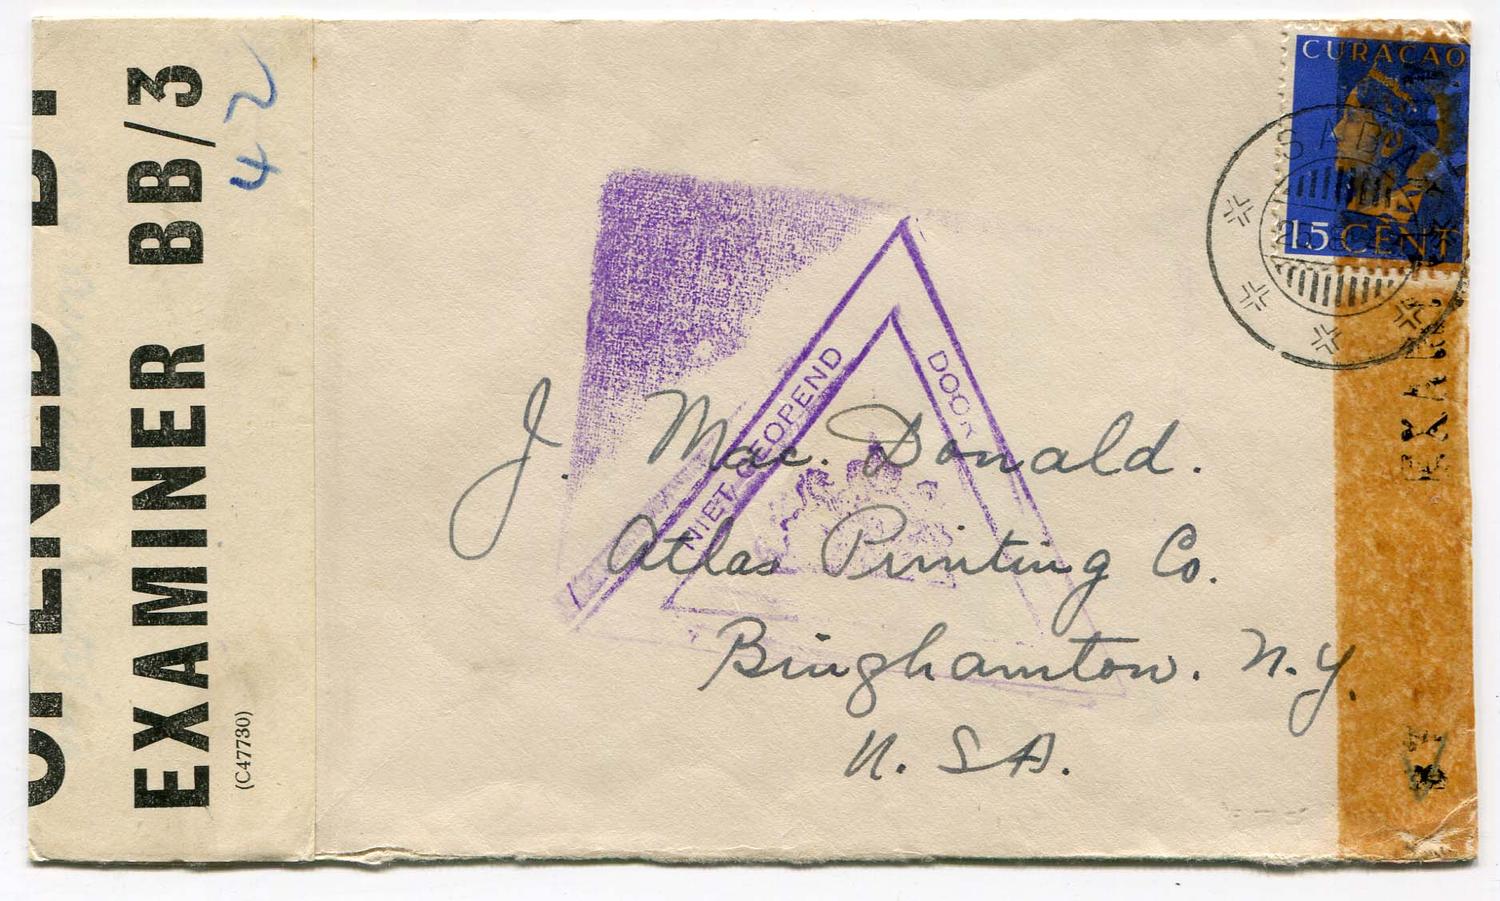 EXAMINER BB/3
42
(C47730)
CURACAO
15 CENT
SABA
NIET GEOPEND DOOR
J. Mac. Donald.
Atlas Printing Co.
Binghamton. N.Y.
U. S A.
EXAM
BY